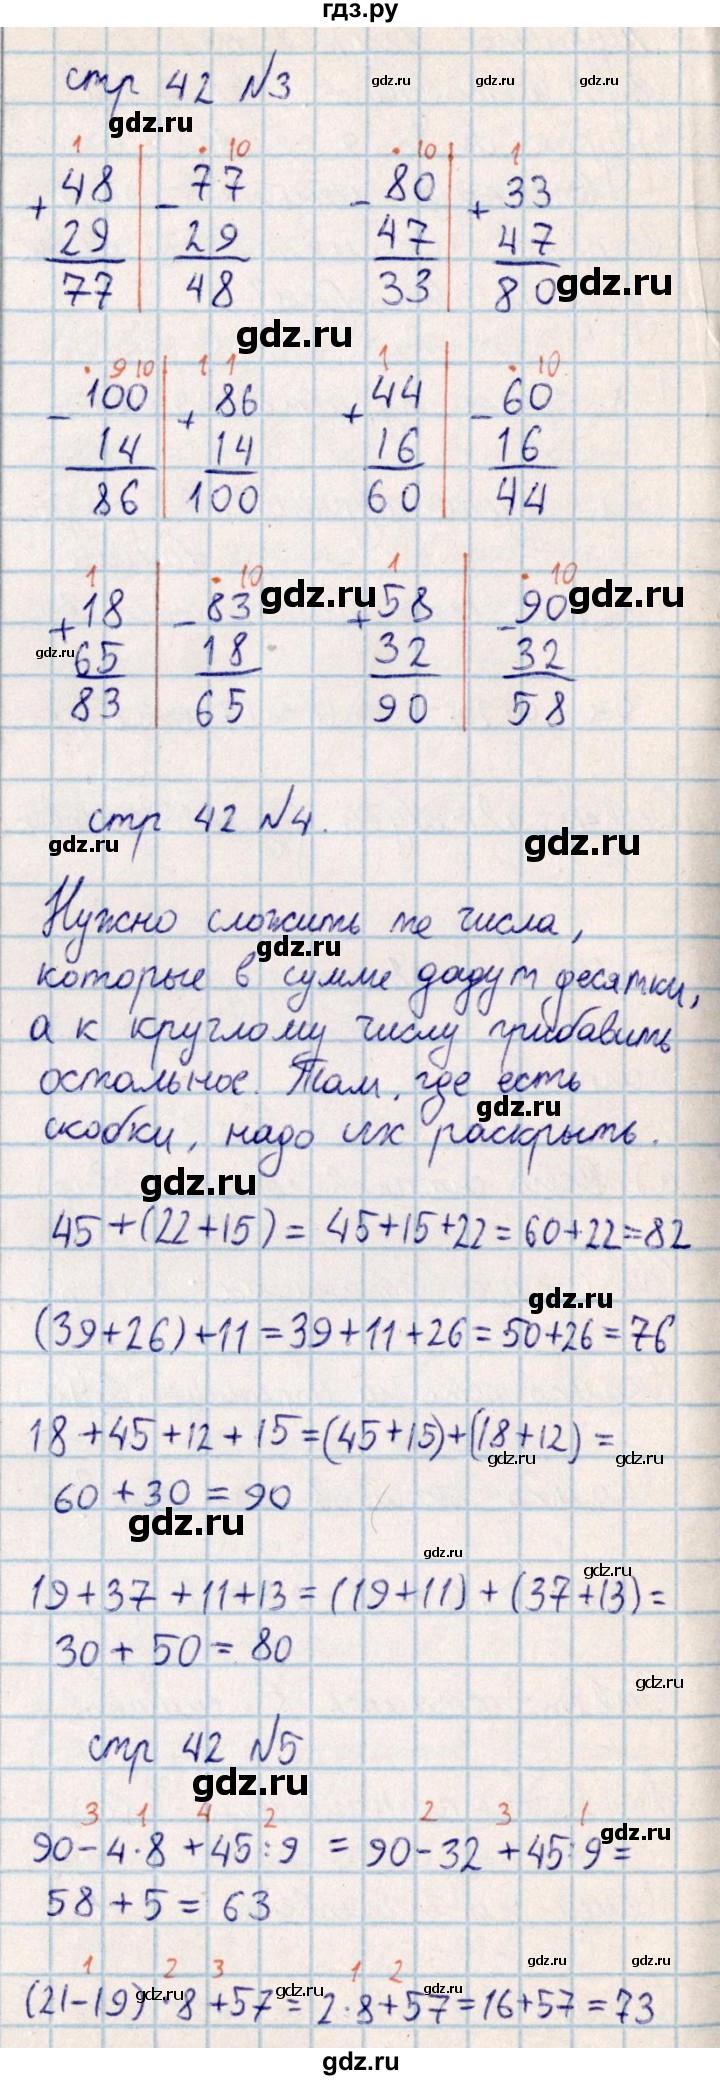 гдз.ру
стр 42 №3
1 · 10 · 10 1
+ 48 - 77 - 80 + 33
29 29 47 47
77 48 33 80
· 9 10 1 1 1 · 10
- 100 + 86 + 44 - 60
14 14 16 16
86 100 60 44
1 · 10 1 · 10
+ 18 - 83 + 58 - 90
65 18 32 32
83 65 90 58
стр 42 №4.
Нужно сложить те числа,
которые в сумме дадут десятки,
а к круглому числу прибавить
остальное. Там, где есть
скобки, надо их раскрыть.
45+(22+15)= 45+15+22=60+22=82
(39+26)+11=39+11+26=50+26=76
18+45+12+15=(45+15)+(18+12)=
60+30=90
19+37+11+13=(19+11)+(37+13)=
30+50=80
стр 42 №5
3 1 4 2 2 3 1
90-4·8+45:9 = 90-32+45:9=
58+5=63
1 2 3 1 2
(21-19)·8+57=2·8+57=16+57=73
gdz.ru